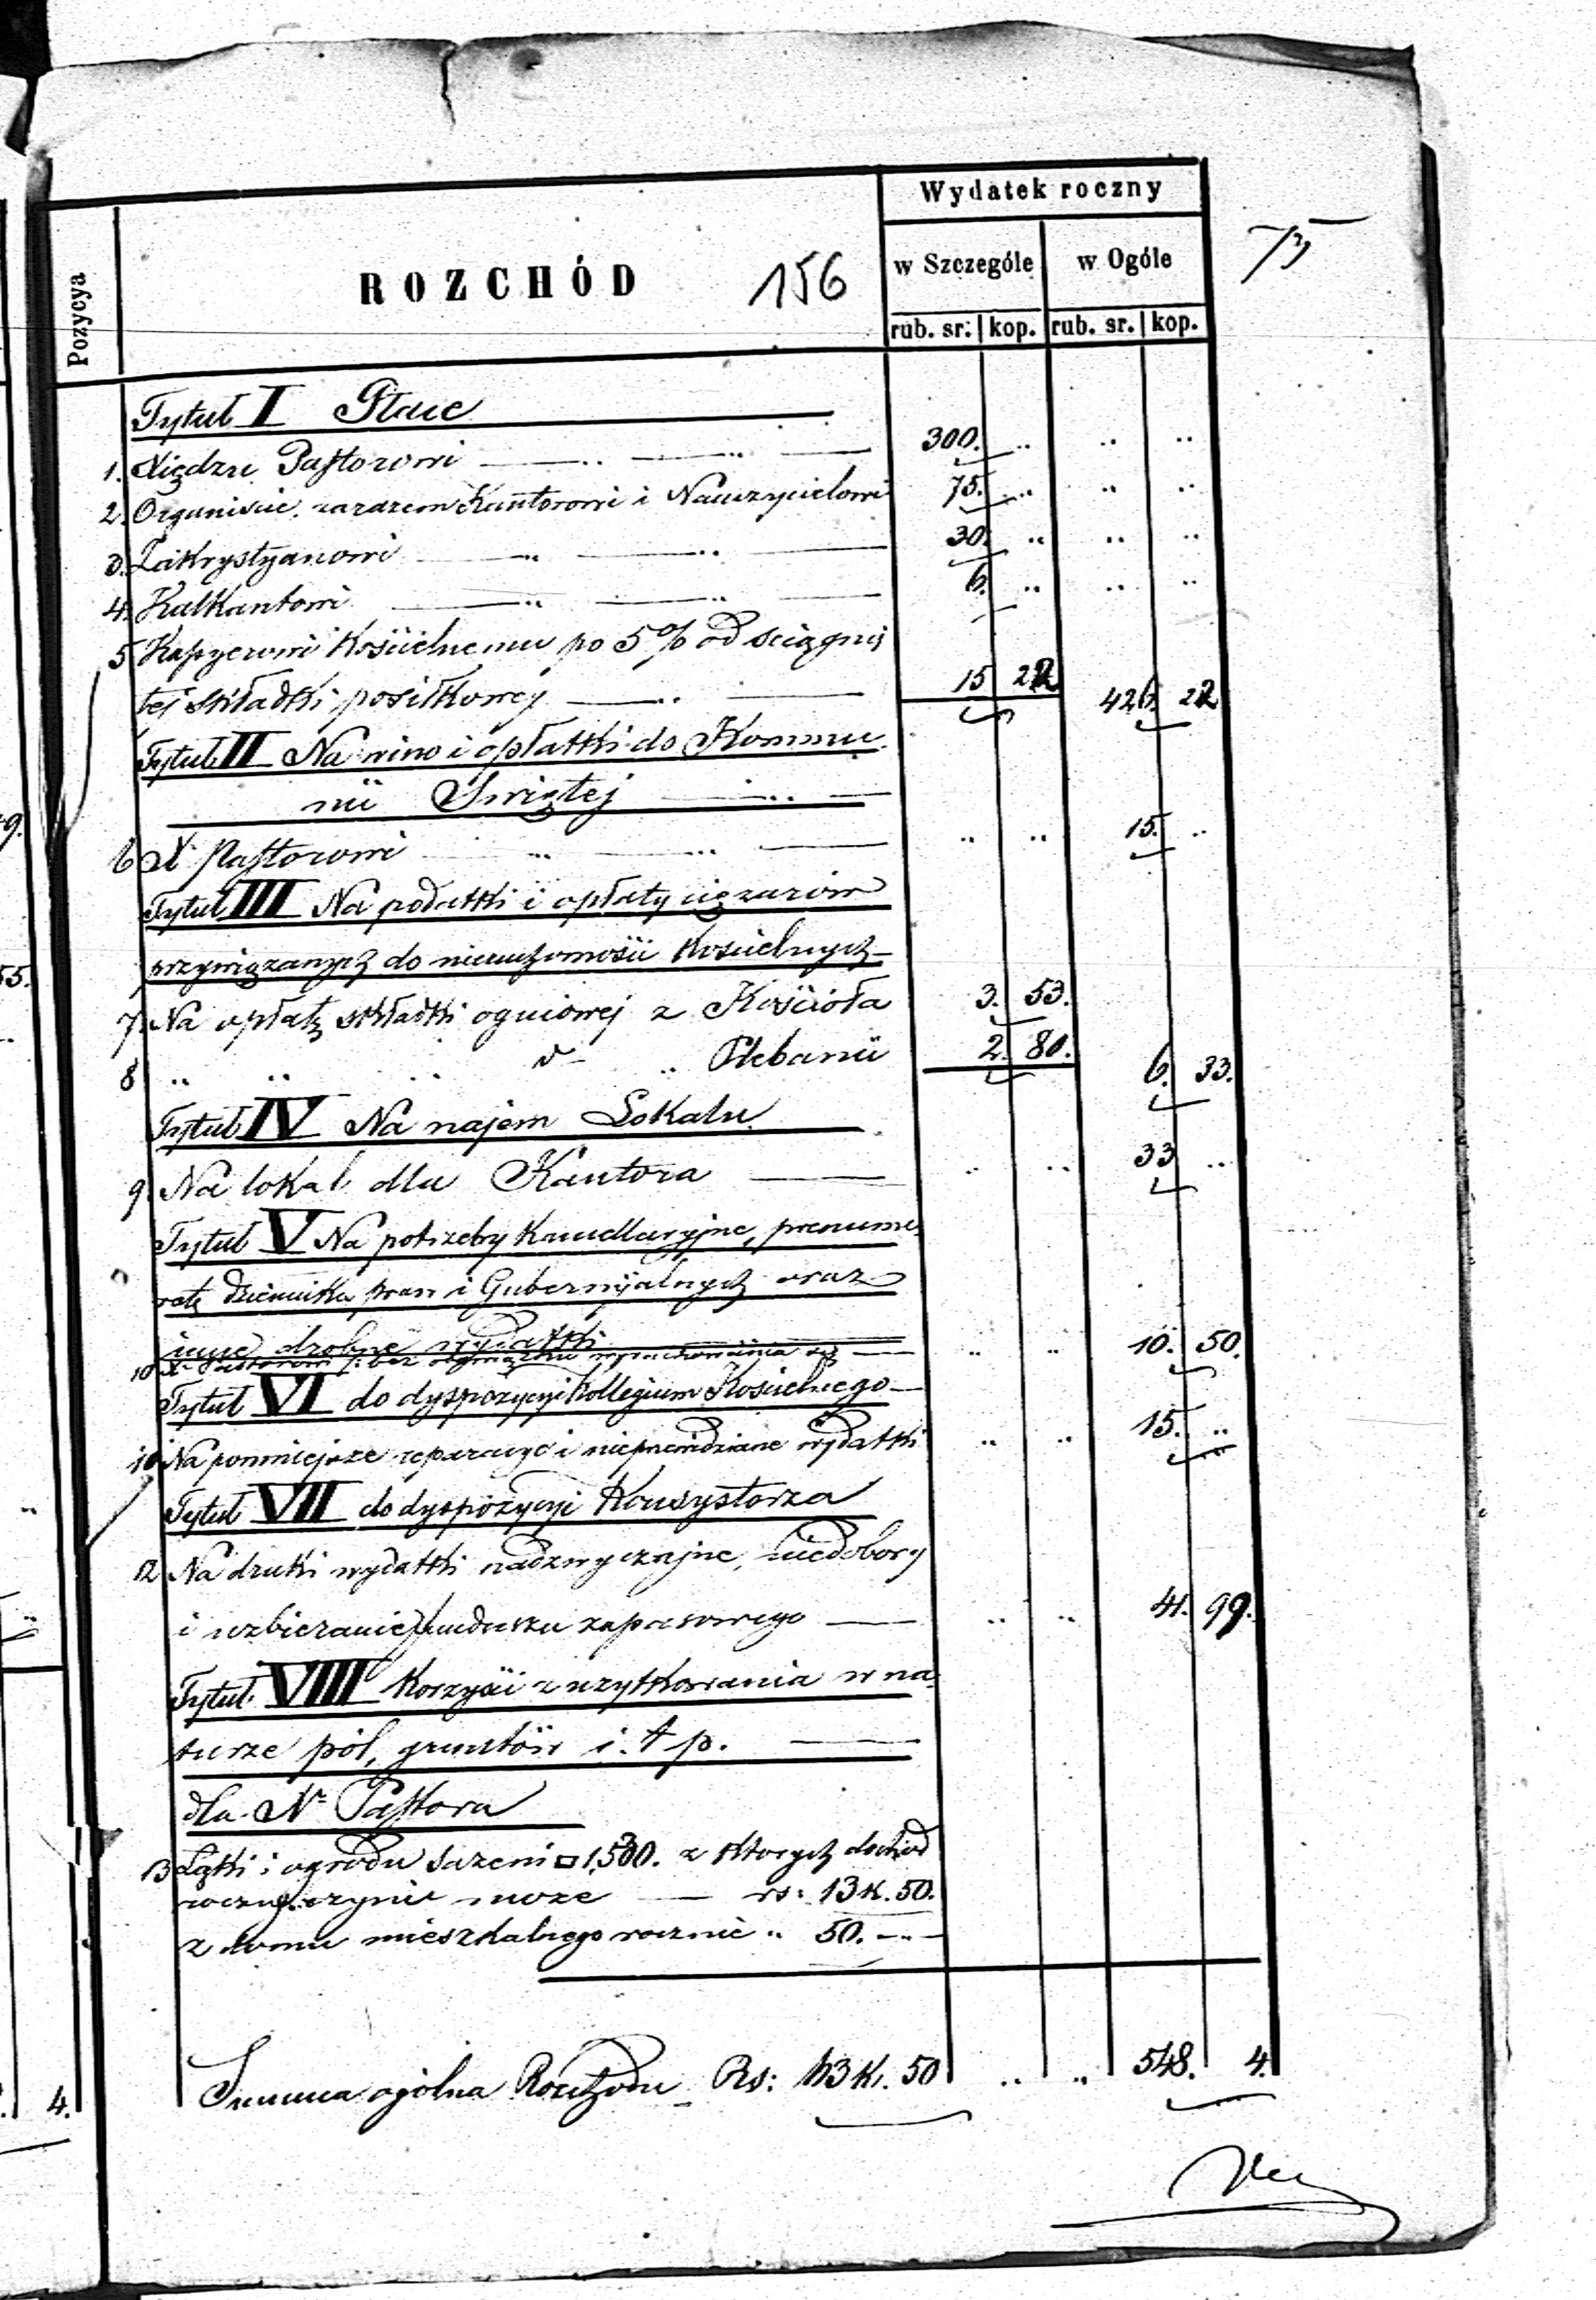 Wydatek roczny
Pozycya
ROZCHÓD
156
w Szczególe
w Ogóle
75
rub. sr. kop. rub. sr. kop.
Tytuł I Płace
1. Xiędzu Pastorowi 300. .. .. ..
2. Organiście zarazem Kantorowi i Nauczycielowi 75. .. .. ..
3. Zakrystyanowi 30. .. .. ..
4. Kalkantowi 6. .. .. ..
5 Kassyerowi Kościelnemu po 5% od sciągnię
tej składki posiłkowej 15 22 426. 22
Tytuł II Na wino i opłatki do Kommu
nii Swiętej
6 X Pastorowi .. .. 15. ..
Tytuł III Na podatki i opłaty ciężarów
przywiązanych do nieruchomości Kościelnych
7. Na opłatę składki ogniowej z Kościoła 3. 53.
8 .. .. .. .. Plebanii 2. 80. 6. 33.
Tytuł IV Na najem Lokalu
9. Na lokal dla Kantora .. .. 33 ..
Tytuł V Na potrzeby Kancellaryjne, prenume
ratę dziennika praw i Gubernijalnych oraz
inne drobne wydatki
10 X. Pastorowi bez obowiązku wyrachowania się .. .. 10. 50.
Tytuł VI do dyspozycyi Kollegium Kościelnego
Na pomniejsze reparacye i nieprzewidziane wydatki .. .. 15. ..
Tytuł VII do dyspozycyi Konsystorza
12 Na druki wydatki nadzwyczajne, niedobory
i uzbieranie funduszu zapasowego .. .. 41. 99.
Tytuł VIII Korzyści z użytkowania w na
turze pól, gruntów i. t p.
dla Pastora
13 Łąki i ogrodu sążeni □ 1,500. z których dochód
roczny czynić może rs: 13 K. 50.
z domu mieszkalnego rocznie " 50. - " -
Summa ogólna Rozchodu Rs: K. 50 .. .. 548. 4.